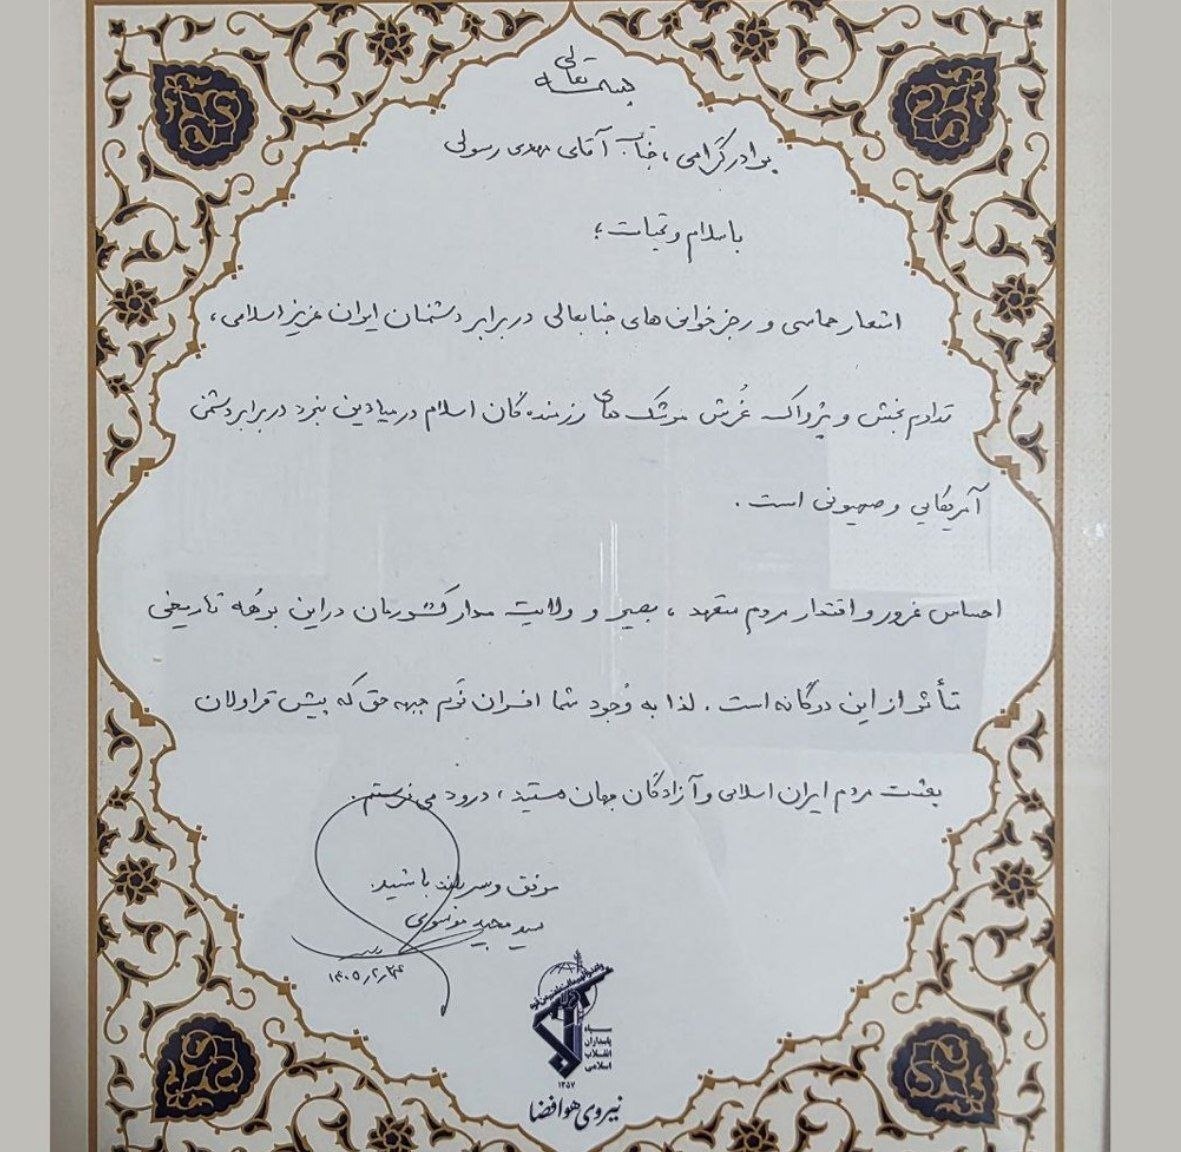 بسمه تعالی
برادر گرامی، جناب آقای مهدی رسولی
با سلام و تحیات؛
اشعار حماسی و رجزخوانی های جنابعالی در برابر دشمنان ایران عزیز اسلامی،
تداوم بخش و پژواک غُرش موشک های رزمنده گان اسلام در میادین نبرد در برابر دشمن
آمریکایی و صهیونی است.
احساس غرور و اقتدار مردم متعهد، بصیر و ولایت مدار کشورمان در این بُرهه تاریخی
تأثر از این دوگانه است. لذا به وُجود شما افسران نَرم جبهه حق که پیش قراولان
بعثت مردم ایران اسلامی و آزادگان جهان هستید، درود می فرستم.
موفق و سربلند باشید.
سید مجید موسوی
۱۴۰۵٫۲٫
سپاه
پاسداران
انقلاب
اسلامی
۱۳۵۷
نیروی هوافضا